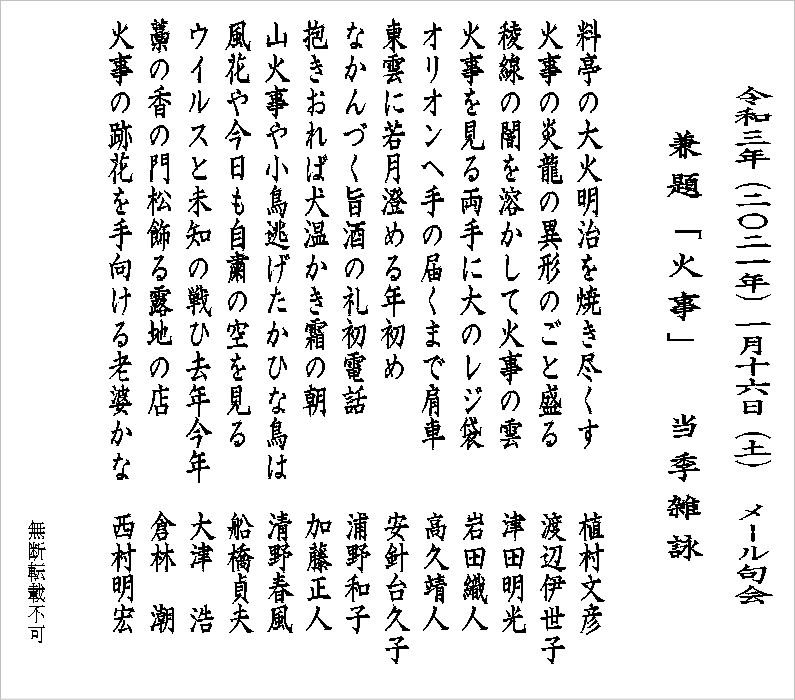 令和三年（二〇二一年）一月十六日（土）　メール句会
兼題「火事」　当季雑詠
料亭の大火明治を焼き尽くす　植村文彦
火事の炎龍の異形のごと盛る　渡辺伊世子
稜線の闇を溶かして火事の雲　津田明光
火事を見る両手に大のレジ袋　岩田織人
オリオンへ手の届くまで肩車　高久靖人
東雲に若月澄める年初め　安針台久子
なかんづく旨酒の礼初電話　浦野和子
抱きおれば犬温かき霜の朝　加藤正人
山火事や小鳥逃げたかひな鳥は　清野春風
風花や今日も自粛の空を見る　船橋貞夫
ウイルスと未知の戦ひ去年今年　大津　浩
藁の香の門松飾る露地の店　倉林　潮
火事の跡花を手向ける老婆かな　西村明宏
無断転載不可